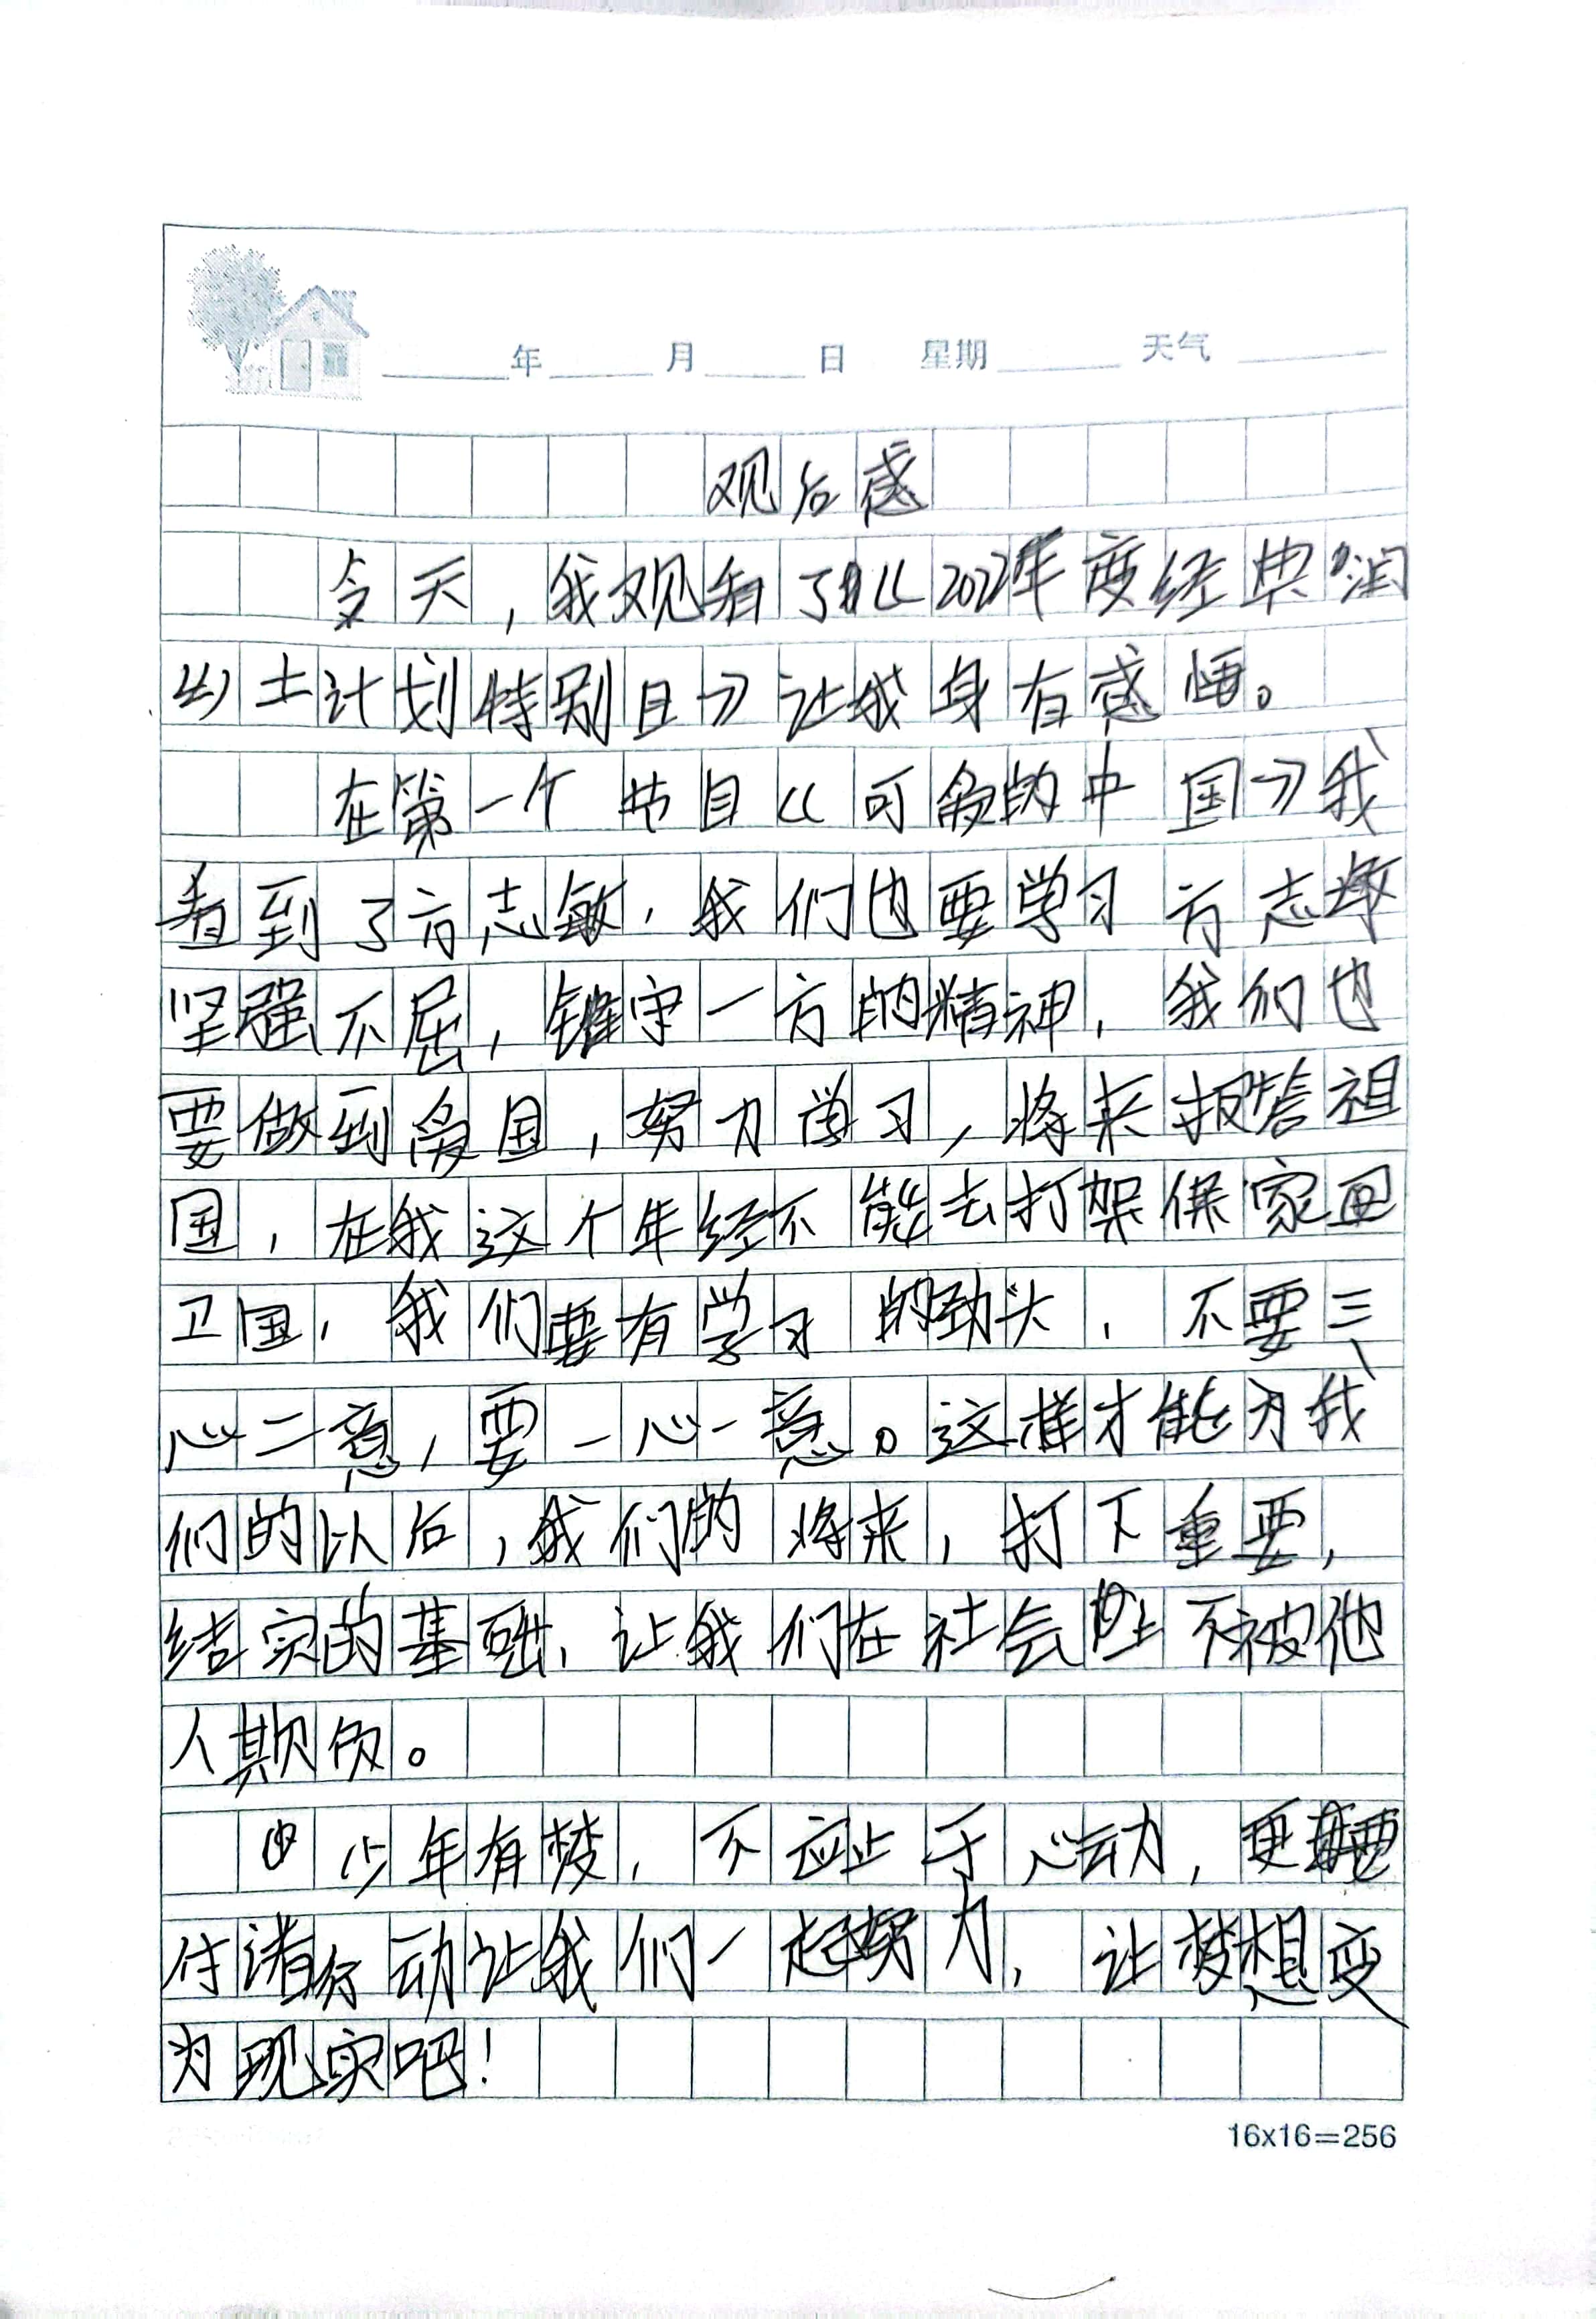 年 月 日 星期 天气
观后感
今天,我观看了《2022年度经典润
土计划特别目》让我身有感悟。
在第一个节目《可爱的中国》我
看到了方志敏,我们也要学习方志敏
坚强不屈,锥守一方的精神,我们也
要做到爱国,努力学习,将来报答祖
国,在我这个年经不能去打架保家
卫国,我们要有学习的劲头,不要三
心二意,要一心一意。这样才能为我
们的以后,我们的将来,打下重要,
结实的基础,让我们在社会上不被他
人欺负。
少年有梦,不应止于心动,更要
付诸行动让我们一起努力,让梦想变
为现实吧!
16x16=256